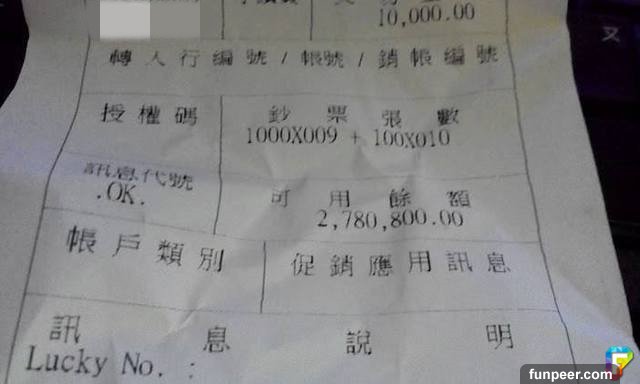 10,000.00
轉入行編號/帳號/銷帳編號
授權碼
鈔票張數
1000X009 + 100X010
訊息代號
.OK.
可用餘額
2,780,800.00
帳戶類別
促銷應用訊息
訊息說明
Lucky No. :
又
funpeer.com